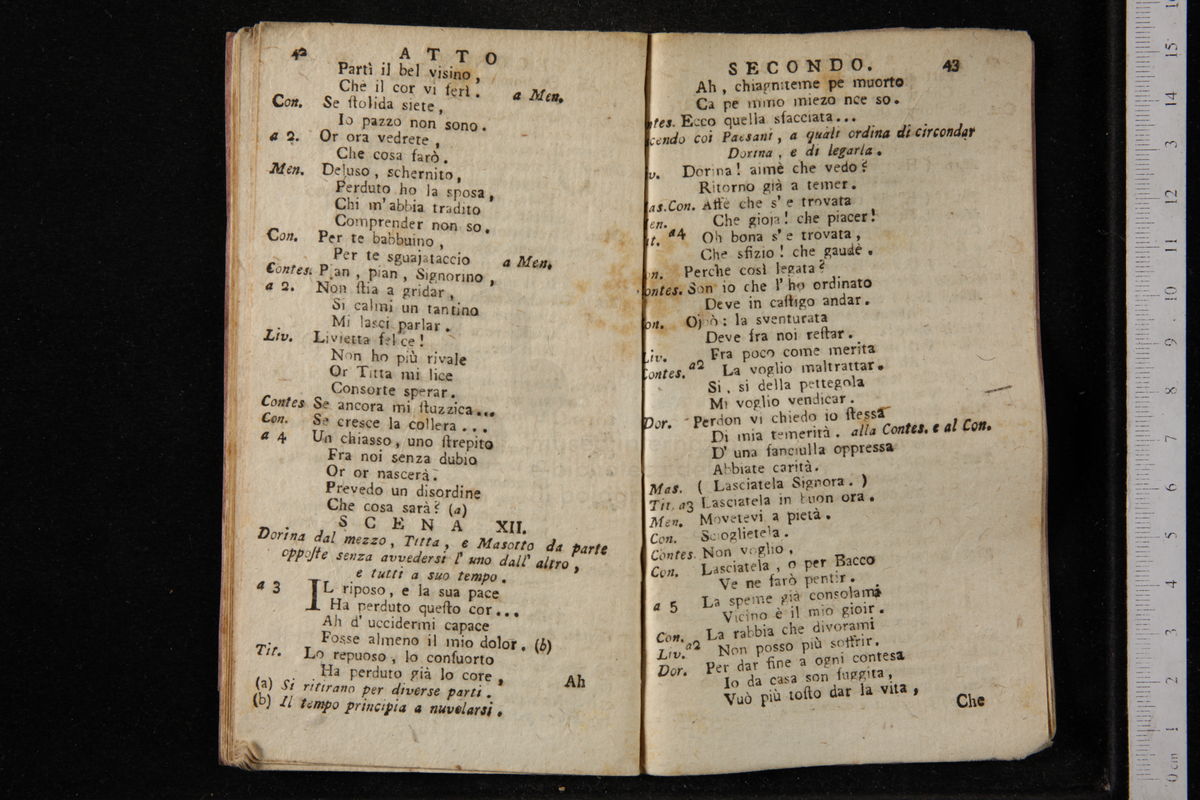 42 ATTO
Partì il bel visino,
Che il cor vi ferì. a Men.
Con. Se ſtolida siete,
Io pazzo non sono.
a 2. Or ora vedrete,
Che cosa farò.
Men. Deluso, schernito,
Perduto ho la sposa,
Chi m'abbia tradito
Comprender non so.
Con. Per te babbuino,
Per te sguajataccio a Men.
Contes. Pian, pian, Signorino,
a 2. Non ſtia a gridar,
Si calmi un tantino
Mi lasci parlar.
Liv. Livietta felice!
Non ho più rivale
Or Titta mi lice
Consorte sperar.
Contes Se ancora mi ſtuzzica...
Con. Se cresce la collera...
a 4 Un chiasso, uno ſtrepito
Fra noi senza dubio
Or or nascerà.
Prevedo un disordine
Che cosa sarà? (a)
SCENA XII.
Dorina dal mezzo, Titta, e Masotto da parte
oppoſte senza avvedersi l'uno dall'altro,
e tutti a suo tempo.
a 3 IL riposo, e la sua pace
Ha perduto queſto cor...
Ah d'uccidermi capace
Fosse almeno il mio dolor. (b)
Tit. Lo repuoso, lo confuorto
Ha perduto già lo core,
Ah
(a) Si ritirano per diverse parti.
(b) Il tempo principia a nuvolarsi.
SECONDO. 43
Ah, chiagniteme pe muorto
Ca pe mmo miezo nce so.
ntes. Ecco quella sfacciata...
scendo coi Paesani, a quali ordina di circondar
Dorina, e di legarla.
v. Dorina! aimè che vedo?
Ritorno già a temer.
as.Con. Affè che s'e trovata
en. Che gioja! che piacer!
it. a4 Oh bona s'e trovata,
Che sfizio! che gaudè.
on. Perche così legata?
ontes. Son io che l'ho ordinato
Deve in caſtigo andar.
on. Oibò: la sventurata
Deve fra noi reſtar.
Liv. Fra poco come merita
Contes. a2 La voglio maltrattar.
Si, si della pettegola
Mi voglio vendicar.
Dor. Perdon vi chiedo io ſtessa
Di mia temerità. alla Contes. e al Con.
D'una fanciulla oppressa
Abbiate carità.
Mas. ( Lasciatela Signora. )
Tit. a3 Lasciatela in buon ora.
Men. Movetevi a pietà.
Con. Scioglietela.
Contes. Non voglio,
Con. Lasciatela, o per Bacco
Ve ne farò pentir.
a 5 La speme già consolami
Vicino è il mio gioir.
Con. La rabbia che divorami
Liv. a2 Non posso più soffrir.
Dor. Per dar fine a ogni contesa
Io da casa son fuggita,
Vuò più toſto dar la vita,
Che